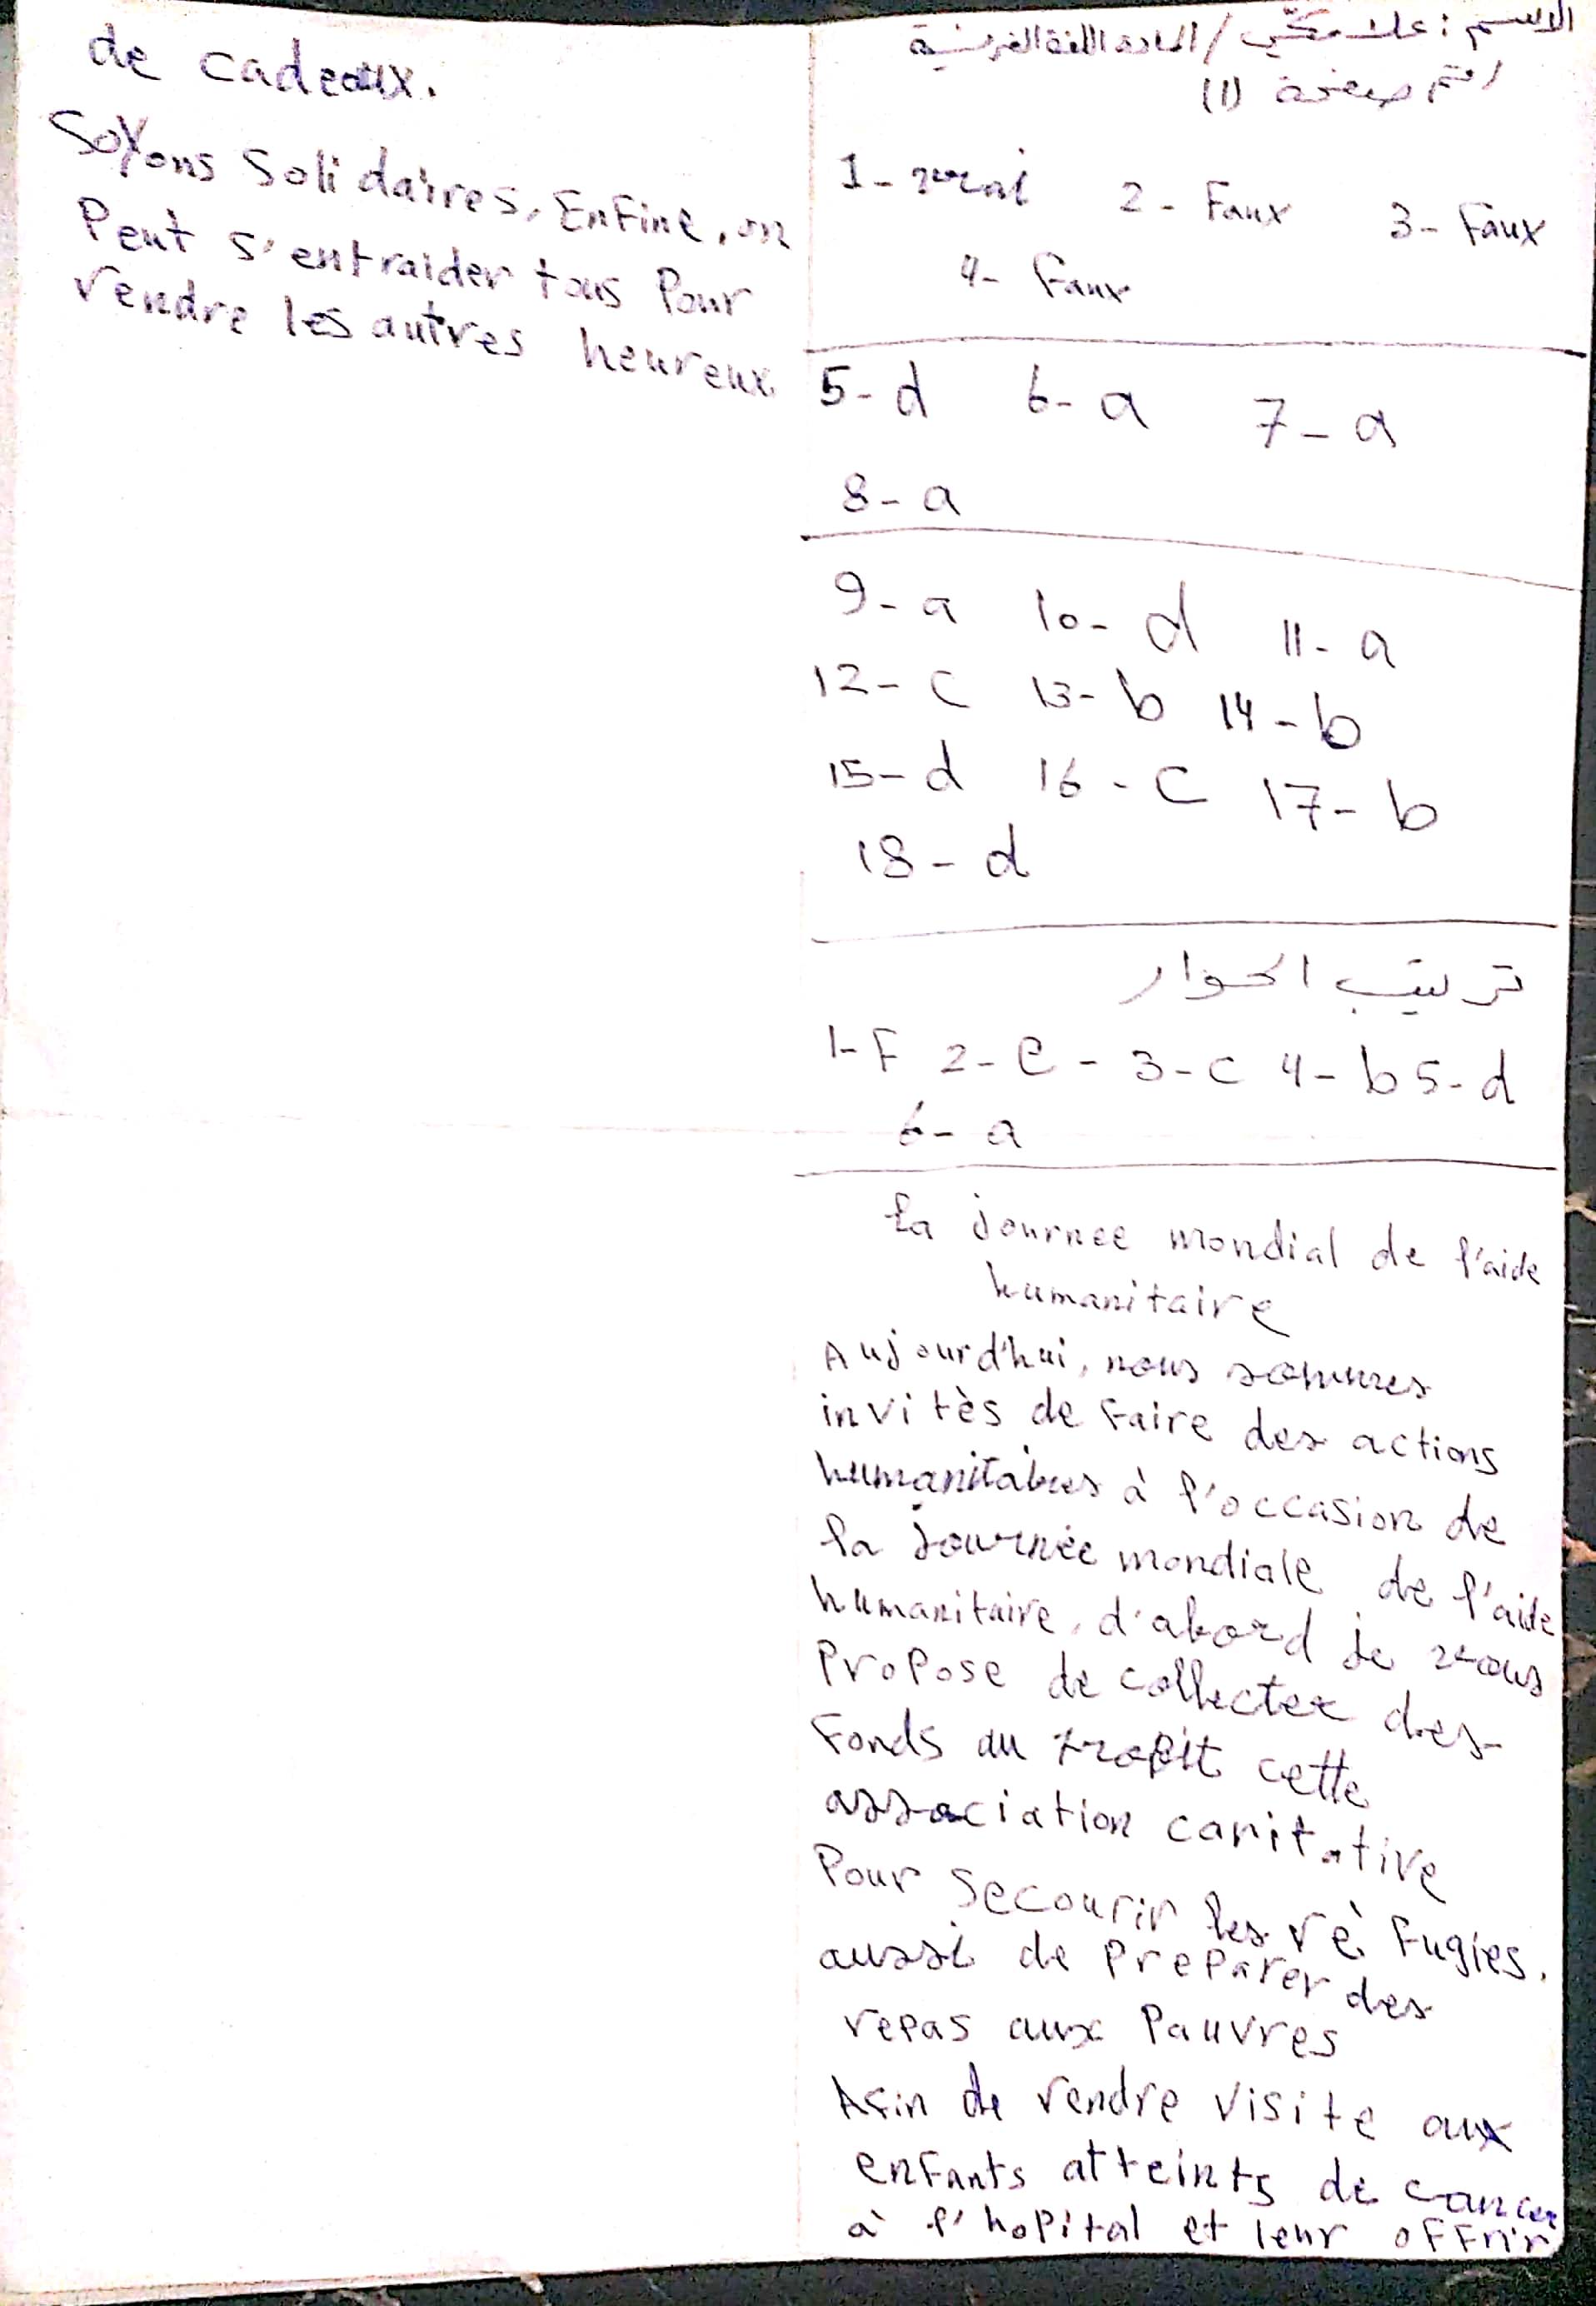 الاسم : علا مكّي / المادة اللغة الفرنسية
رقم صفحة (1)
1- vrai 2- Faux 3- Faux
4- Faux
5- d 6- a 7- a
8- a
9- a 10- d 11- a
12- c 13- b 14- b
15- d 16- c 17- b
18- d
ترتيب الحوار
1- F 2- e - 3- c 4- b 5- d
6- a
la journee mondial de l'aide
humanitaire
Aujourd'hui, nous sommes
invitès de Faire des actions
humanitaires à l'occasion de
la journèe mondiale de l'aide
humanitaire. d'abord je vous
Propose de collecter des
Fonds au profit cette
association caritative
Pour Secourir les rè Fugies.
aussi de PreParer des
repas aux Pauvres
AFin de rendre visite aux
enFants atteints de cancer
à l'hoPital et leur oFFrir
de cadeaux.
Soyons Solidaires. EnFine, on
Peut s'entraider tous Pour
rendre les autres heureux